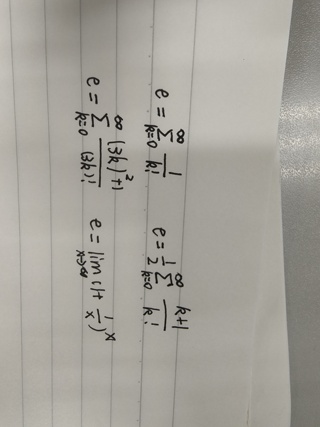 e = \sum_{k=0}^{\infty} \frac{1}{k!} e = \frac{1}{2} \sum_{k=0}^{\infty} \frac{k+1}{k!}
e = \sum_{k=0}^{\infty} \frac{(3k)^2+1}{(3k)!} e = \lim_{x \to \infty} (1+\frac{1}{x})^x